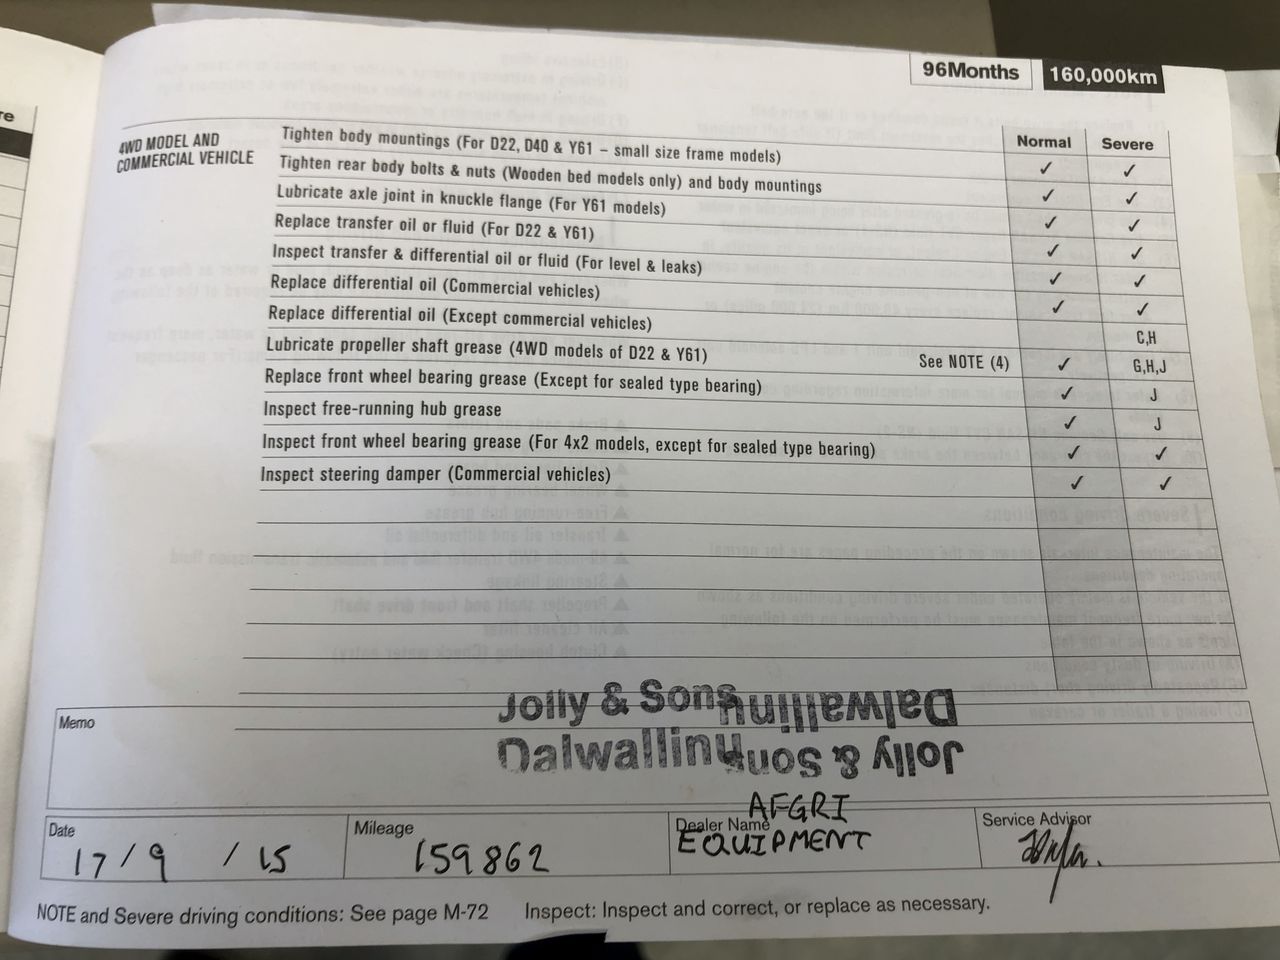 re
96Months 160,000km
4WD MODEL AND
COMMERCIAL VEHICLE
Normal Severe
Tighten body mountings (For D22, D40 & Y61 – small size frame models) ✓ ✓
Tighten rear body bolts & nuts (Wooden bed models only) and body mountings ✓ ✓
Lubricate axle joint in knuckle flange (For Y61 models) ✓ ✓
Replace transfer oil or fluid (For D22 & Y61) ✓ ✓
Inspect transfer & differential oil or fluid (For level & leaks) ✓ ✓
Replace differential oil (Commercial vehicles) ✓ ✓
Replace differential oil (Except commercial vehicles) C,H
Lubricate propeller shaft grease (4WD models of D22 & Y61) See NOTE (4) ✓ G,H,J
Replace front wheel bearing grease (Except for sealed type bearing) ✓ J
Inspect free-running hub grease ✓ J
Inspect front wheel bearing grease (For 4x2 models, except for sealed type bearing) ✓ ✓
Inspect steering damper (Commercial vehicles) ✓ ✓
Memo
Jolly & Sons
Dalwallinu
Jolly & Sons
Dalwallinu
Date
17/9/15
Mileage
159862
Dealer Name
AFGRI
EQUIPMENT
Service Advisor
NOTE and Severe driving conditions: See page M-72 Inspect: Inspect and correct, or replace as necessary.